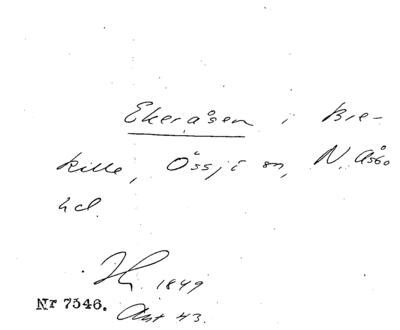 Ekeråsen i Bre-
kille, Össjö sn, N. Åsbo
hd.
1849
Nr 7546. Ant 43.